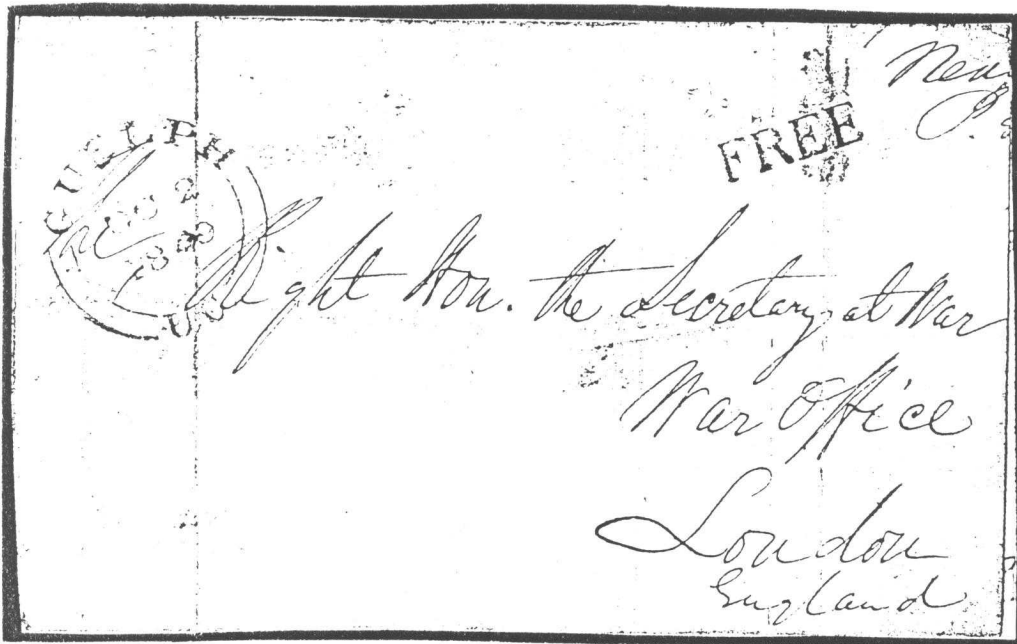 FREE
GUELPH
Right Hon. the Secretary at War
War Office
London
England